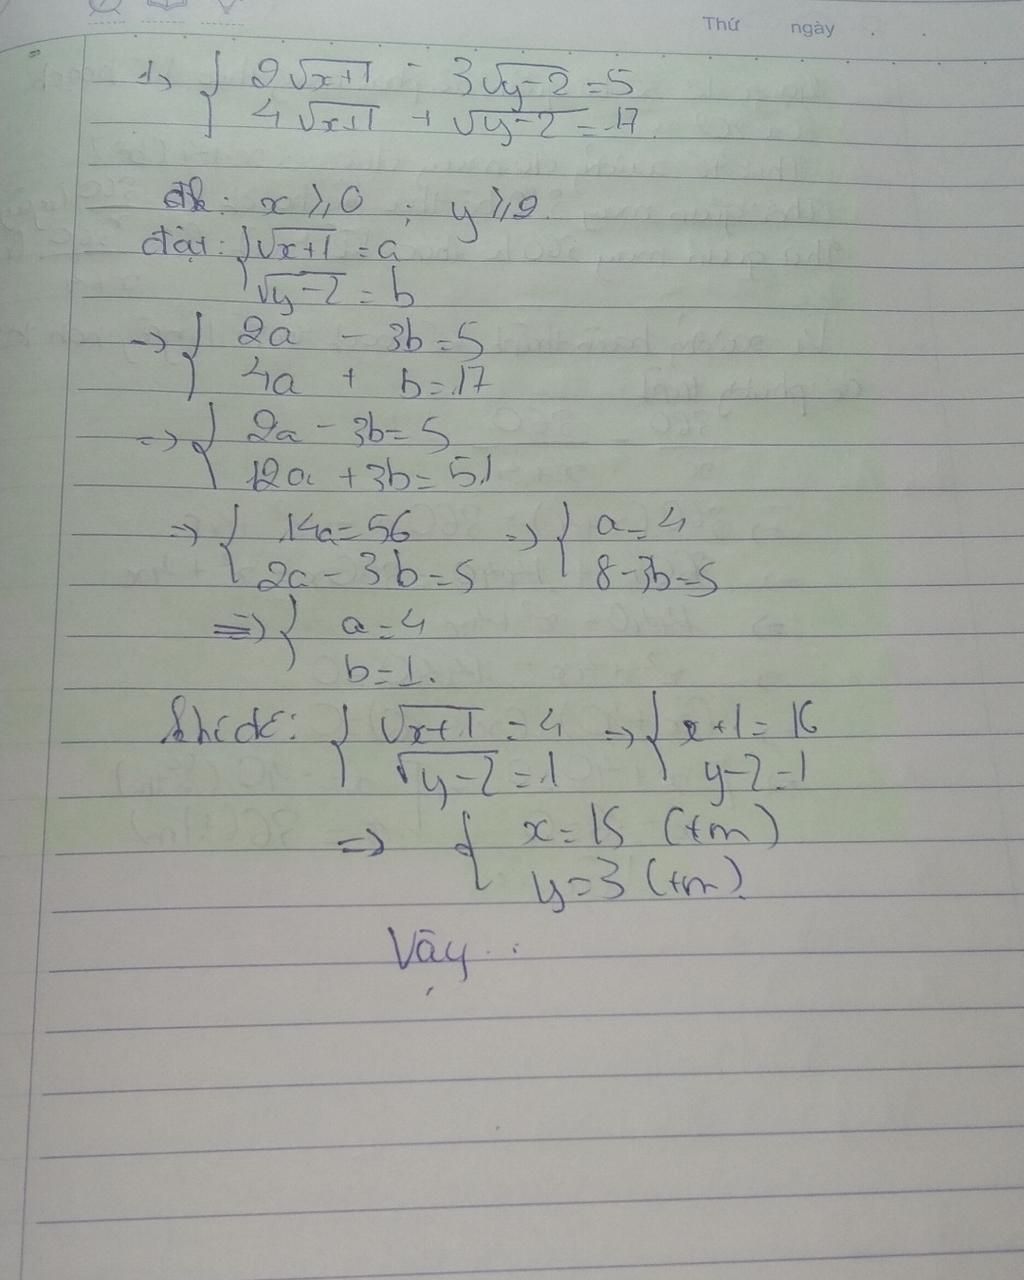 Thứ ngày . .
1, { 2√x+1 - 3√y-2 = 5
4√x+1 + √y-2 = 17
đk: x ⩾ 0 ; y ⩾ 2.
đặt: { √x+1 = a
√y-2 = b
→ { 2a - 3b = 5
4a + b = 17
=> { 2a - 3b = 5
12a + 3b = 51
=> { 14a = 56 => { a = 4
2a - 3b = 5 8 - 3b = 5
=> { a = 4
b = 1.
{ √x+1 = 4 => { x+1 = 16
√y-2 = 1 y-2 = 1
=> { x = 15 (tm)
y = 3 (tm).
Vậy...